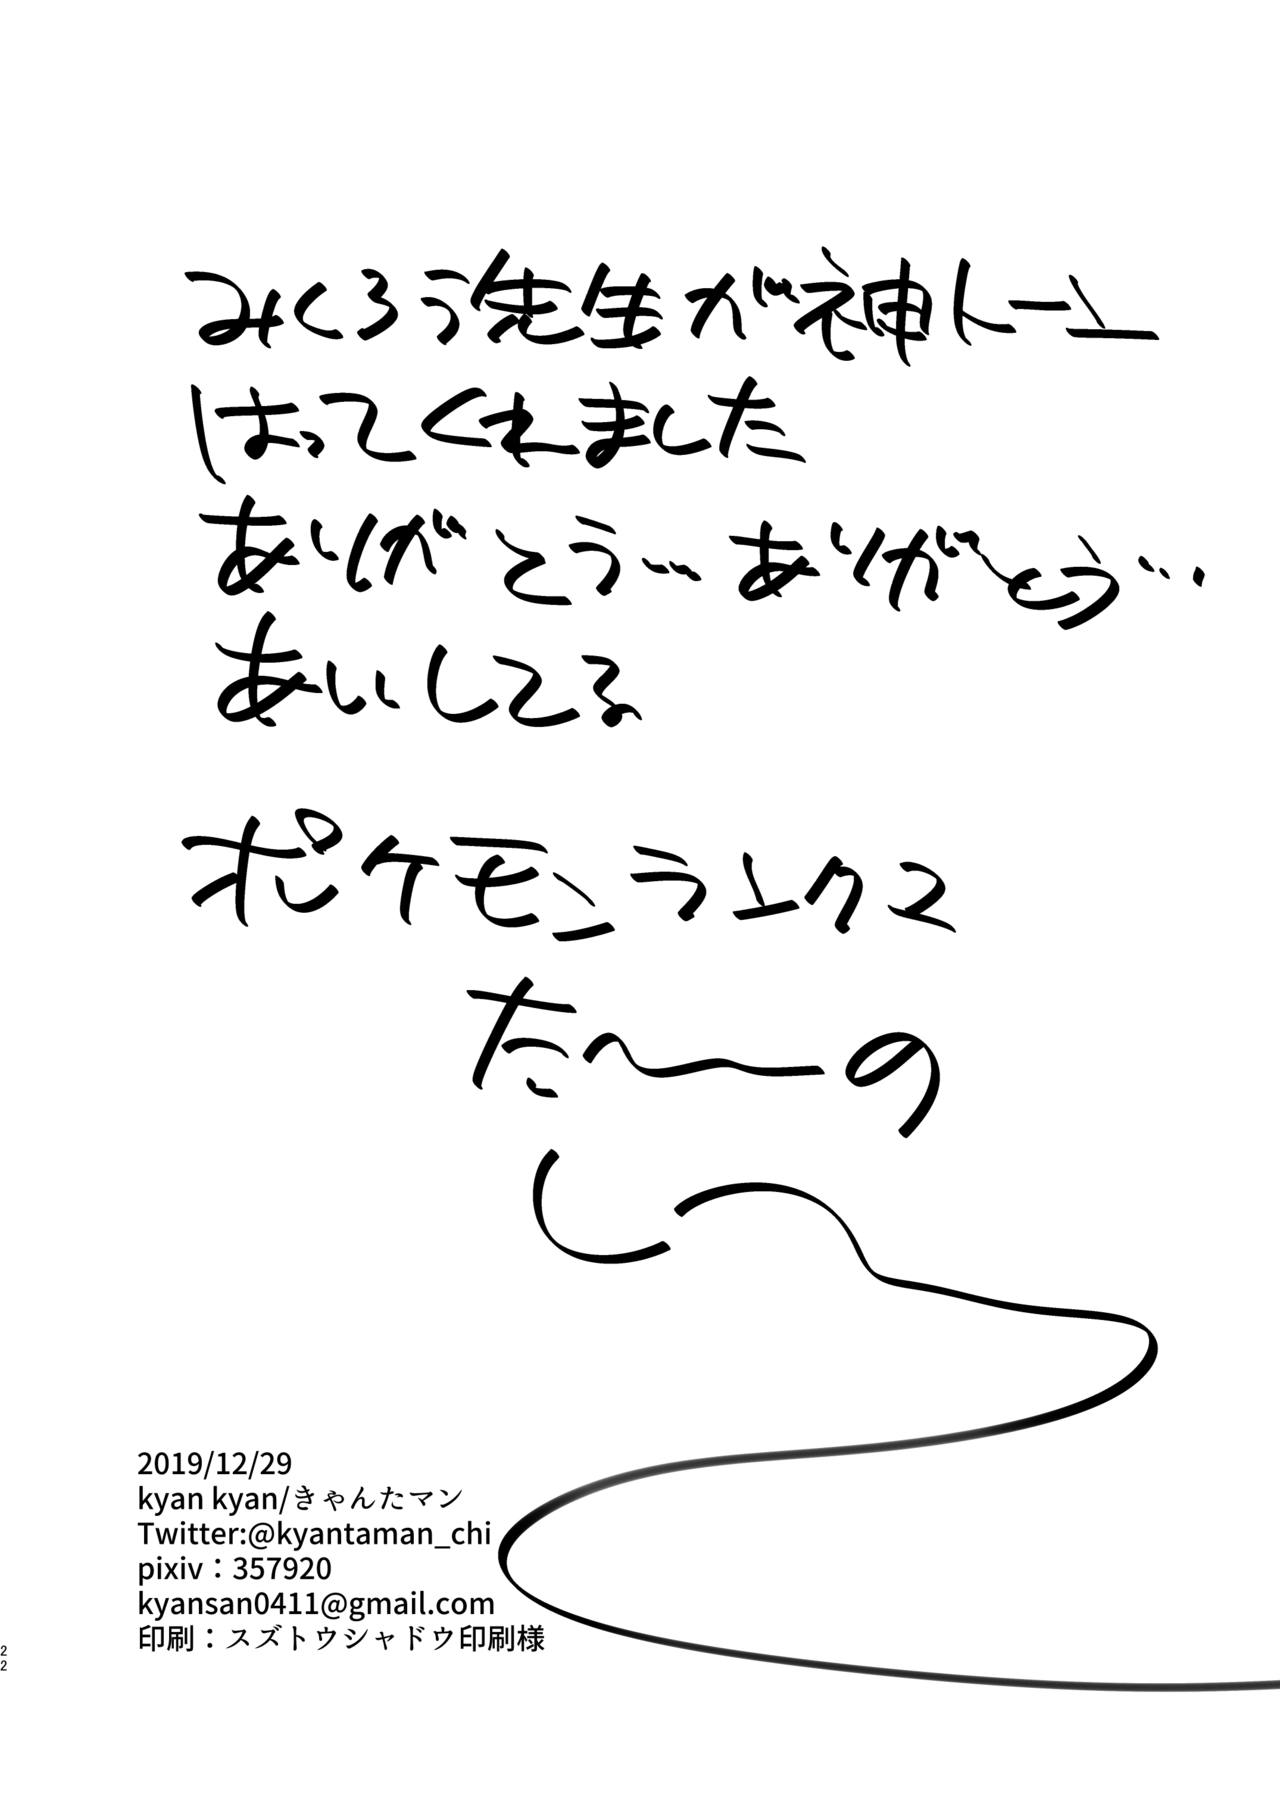 みくろう先生が神トーン
はってくれました
ありがとう…ありがとう…
あいしてる
ポケモンランクマ
た〜の
し〜
2019/12/29
kyan kyan/きゃんたマン
Twitter:@kyantaman_chi
pixiv：357920
kyansan0411@gmail.com
印刷：スズトウシャドウ印刷様
22